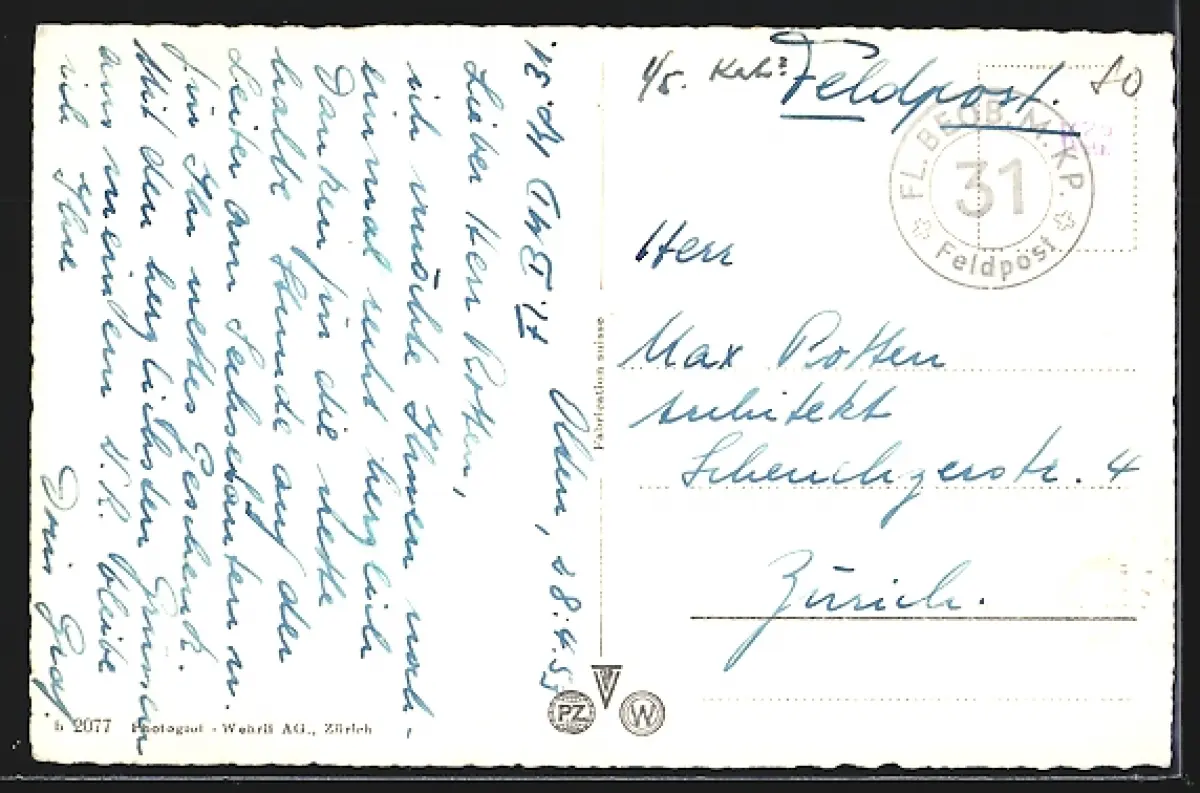 Olden, 28.4.55
Lieber Herr Rotten,
ich möchte Ihnen noch-
einmal recht herzlich
Danken für die nette
halbe Stunde auf der
Leiter am Sechseläuten u.
für Ihr nettes Geschenk.
Mit den herzlichsten Grüssen
aus meinem bleibe
ich Ihre
Doris Graf
Feldpost.
80
FL.BEOB.M.KP.
31
Feldpost
Herr
Max Rotten
Architekt
Scheuchzerstr. 4
Zürich.
Fabrication suisse
PZ
W
2077 Photoglut - Wehrli AG., Zürich